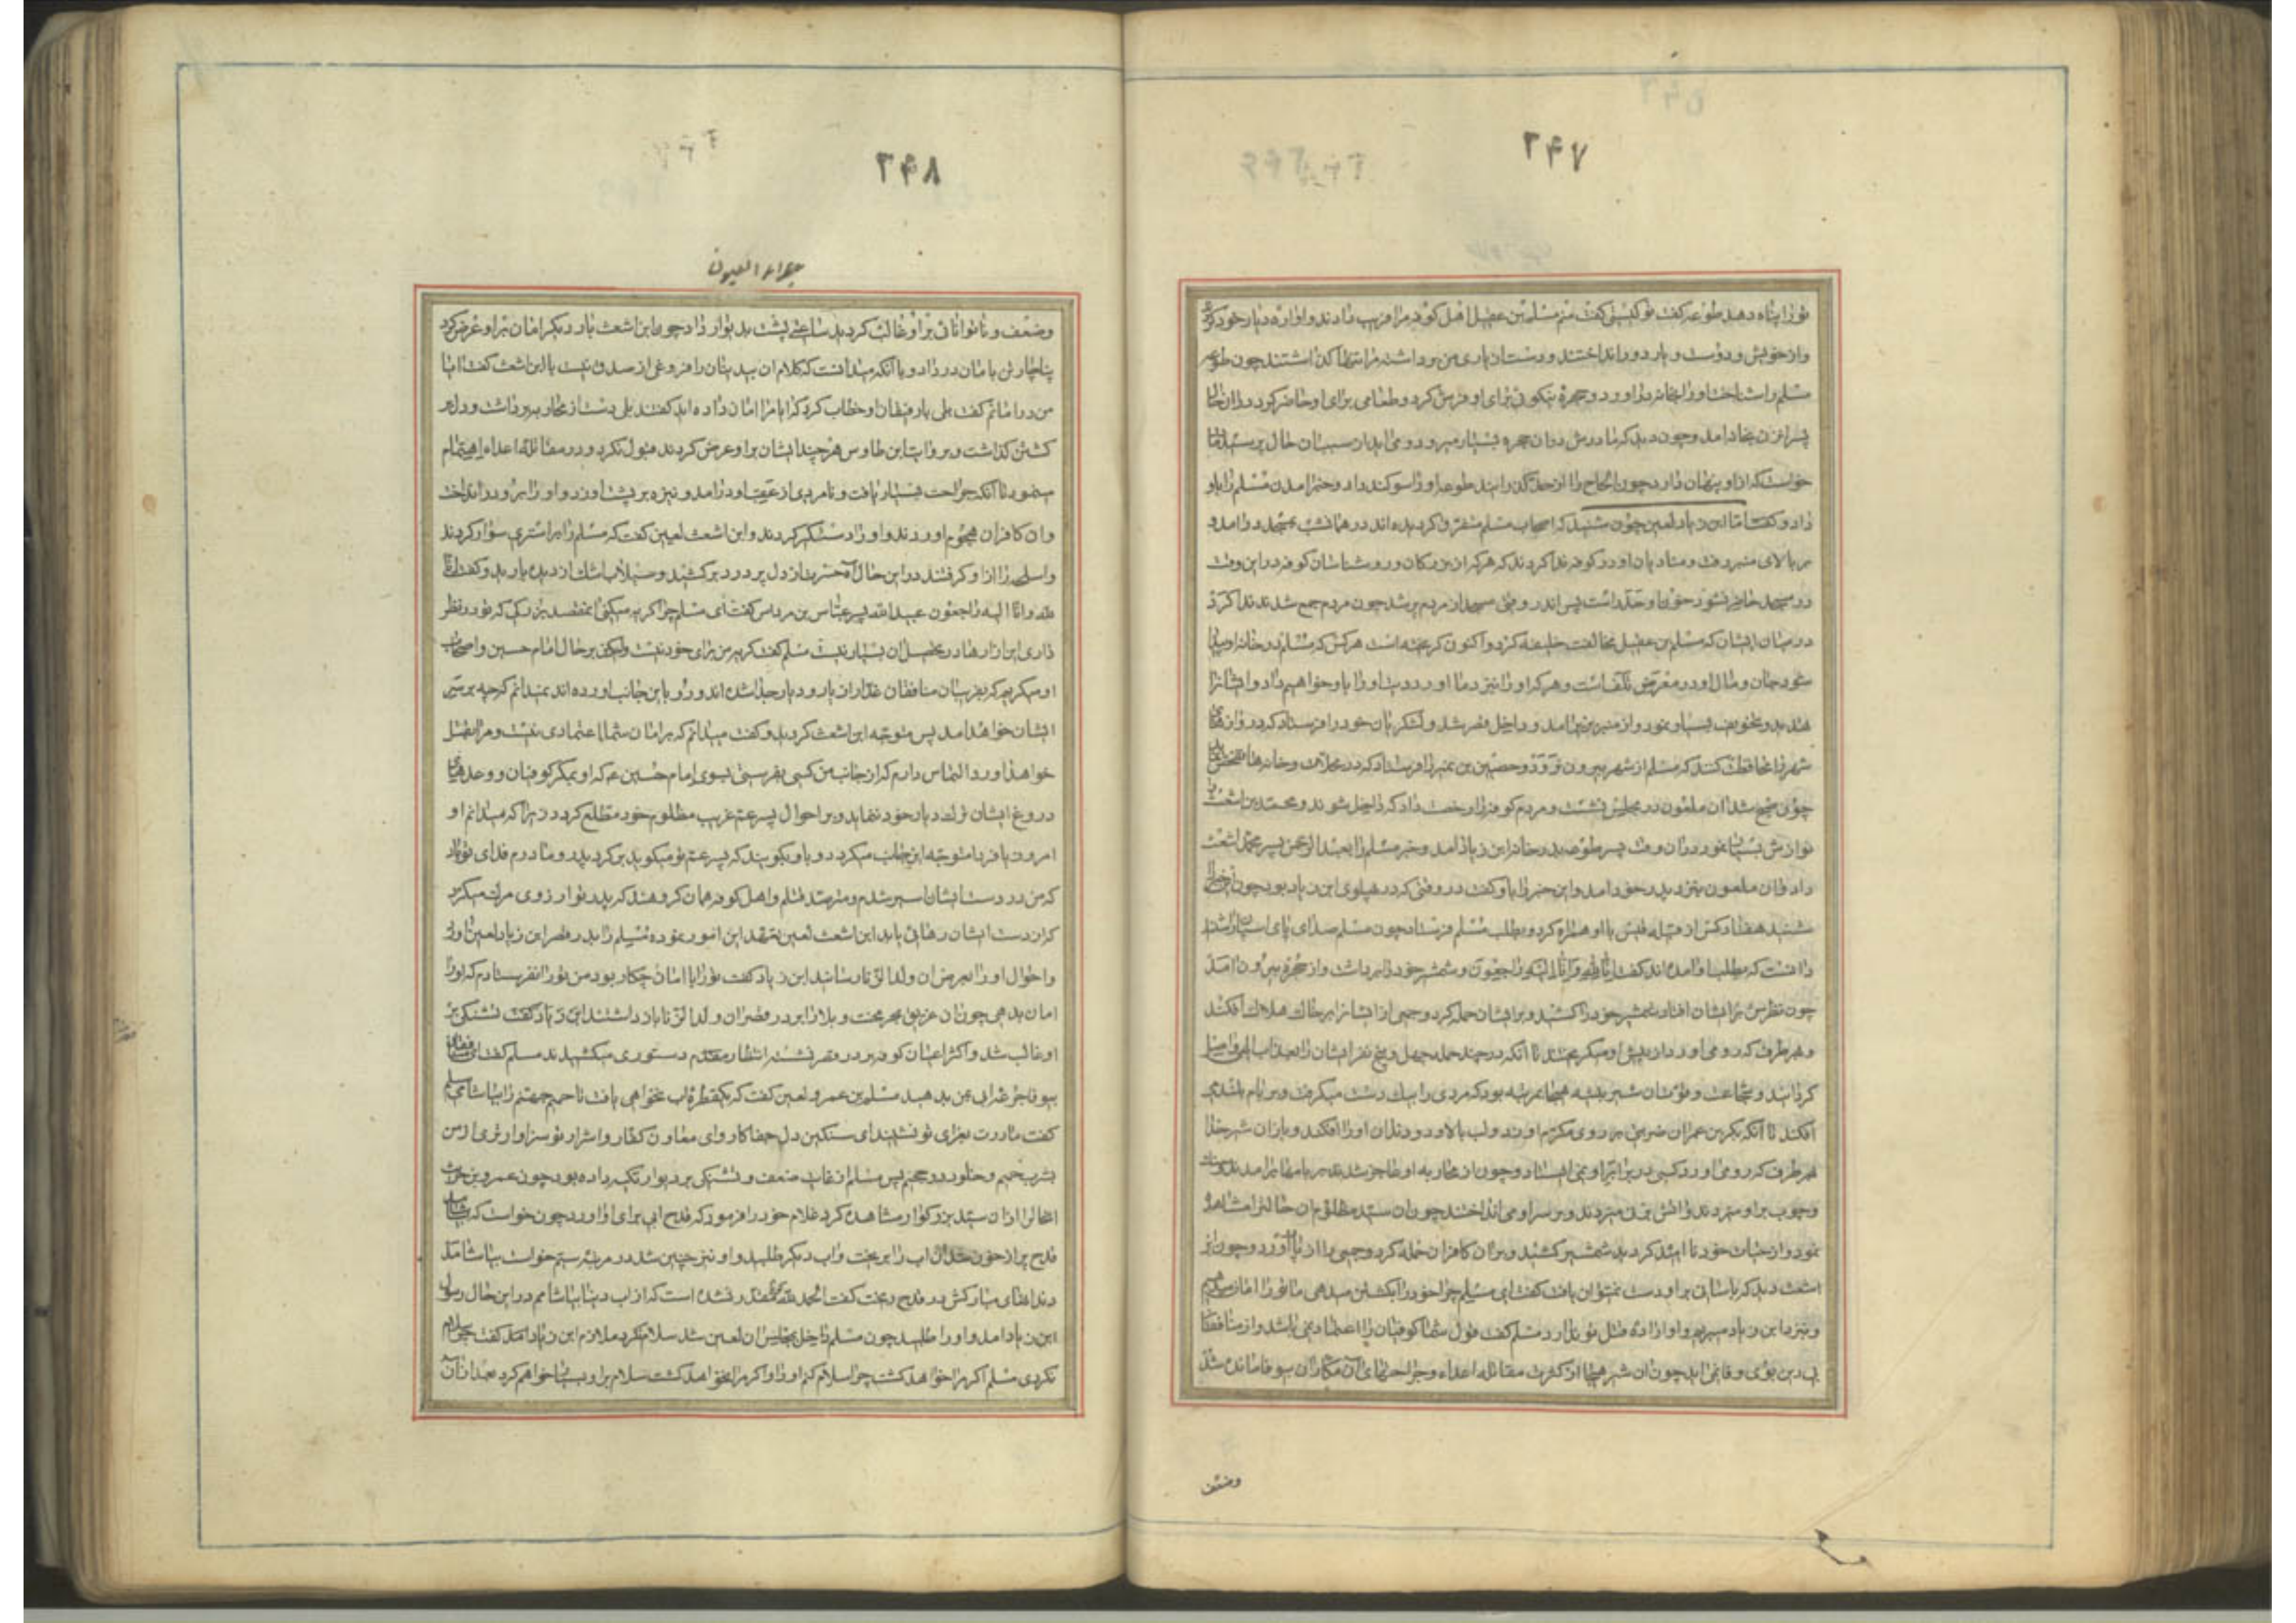 ۲۴۷
تو را پناه دهد طوعه گفت تو کیستی گفت منم مسلم بن عقیل اهل کوفه مرا فریب دادند و آواره دیار خود کردند
و از خویش و دوست و یار دور انداختند و دست از یاری من برداشته مرا تنها گذاشتند چون طوعه
مسلم را شناخت او را بخانه در آورد و حجرهٔ نیکوئی برای او فرش کرد و طعامی برای او حاضر کرد در آن حال
پسر آن زن بخانه درآمد و چون دید که مادرش در آن حجره بسیار میرود و می آید از سبب آن حال پرسید
خواست که از او پنهان دارد چون الحاح را از حد گذرانید طوعه او را سوگند داد و خبر آمدن مسلم را باو
داد و گفت اما ابن زیاد لعین چون شنید که اصحاب مسلم متفرق گردیده اند در همان شب بمسجد درآمد و
بر بالای منبر رفت و منادیان او در کوفه ندا کردند که هر که از بزرگان و روشناسان کوفه در این وقت
در مسجد حاضر نشود خون او هدر است پس اندر وقتی مسجد از مردم پر شد چون مردم جمع شدند ندا کرد
در میان ایشان که مسلم بن عقیل مخالفت خلیفه کرد و اکنون گریخته است هر کس که مسلم در خانه او پیدا
شود جان و مال او در معرض تلف است و هر که او را نیزد ما آورد دیت او را باو خواهیم داد و ایشانرا
تهدید و تخویف بسیار نمود و از منبر بزیر آمد و داخل قصر شد و لشکریان خود را فرستاد که دروازهای
شهر را محافظت کنند که مسلم از شهر بیرون نرود و حصین بن نمیر را فرستاد که در محلات و خانه ها تفحص نماید
چون صبح شد آن ملعون در مجلس نشست و مردم کوفه را رخصت داد که داخل شوند و محمد بن اشعث را
نوازش بسیار نمود در آن وقت پسر طوعه بدر خانه ابن زیاد آمد و خبر مسلم را بعبد الرحمن پسر محمد اشعث
داد و آن ملعون بنزد پدر خود آمد و این خبر را باو گفت در وقتی که در پهلوی ابن زیاد بود چون این خبر را
شنید هفتاد کس از قبیله قیس با او همراه کرد و بطلب مسلم فرستاد چون مسلم صدای پای اسبان را شنید
دانست که بطلب او آمده اند گفت انا لله و انا الیه راجعون و شمشیر خود را برداشت و از حجره بیرون آمد
چون نظرش بر ایشان افتاد شمشیر خود را کشید و بر ایشان حمله کرد و جمعی از ایشانرا بر خاک هلاک افکند
و بهر طرف که رو می آورد از پیش او میگریختند تا آنکه در چند حمله چهل و پنج نفر ایشان را بعذاب الهی واصل
گردانید و شجاعت و قوت آن شیر بیشه هیجا بمرتبه بود که مردی را بیک دست میگرفت و بر بام بلند می
افکند تا آنکه بکر بن حمران ضربتی بر روی مکرم او زد و لب بالا و دو دندان او را افکند و باز آن شیر خدا
بهر طرف که رو می آورد کسی در برابر او نمی ایستاد و چون از محاربه او عاجز شدند بر بامها برآمدند و سنگ
و چوب بر او میزدند و آتش بر نی میزدند و بر سر او می انداختند چون آن سید مظلوم آن حالت را مشاهده
نمود و از حیات خود نا امید گردید شمشیر کشید و بر آن کافران حمله کرد و جمعی را از پا در آورد و چون ابن
اشعث دید که بآسانی بر او دست نمیتوان یافت گفت ای مسلم چرا خود را بکشتن میدهی ما تو را امان میدهیم
و بنزد ابن زیاد میبریم و او اراده قتل تو ندارد مسلم گفت قول شما کوفیان را اعتماد نمی باشد و از منافقان
بی دین بوی وفا نمی آید چون آن شیر هیجا از کثرت مقاتله اعداء و جراحتهای آن مکاران بیوفا مانده شد
وضعف
۲۴۸
جلاء العیون
وضعف و ناتوانائی بر او غالب گردید ساعتی پشت بدیوار داد چون ابن اشعث بار دیگر امان بر او عرض کرد
بناچار تن بامان در داد و با آنکه میدانست که کلام آن بیدینان را فروغی از صدق نیست با ابن اشعث گفت آیا
من در امانم گفت بلی با رفیقان او خطاب کرد که آیا مرا امان داده اید گفتند بلی دست از محاربه برداشت و دل بر
کشتن گذاشت و بروایت ابن طاوس هر چند ایشان بر او عرض کردند قبول نکرد و در مقاتله اعداء اهتمام
مینمود تا آنکه جراحت بسیار یافت و نامردی از عقب او درآمد و نیزه بر پشت او زد و او را برو در انداخت
و آن کافران هجوم آوردند و او را دستگیر کردند و ابن اشعث لعین گفت که مسلم را بر استری سوار کردند
و اسلحه را از او گرفتند در این حال آه حسرت از دل پر درد برکشید و سیلاب اشک از دیده بارید و گفت انا
لله و انا الیه راجعون عبد الله پسر عباس بن مرداس گفت ای مسلم چرا گریه میکنی آن مقصد بزرگ که تو در نظر
داری این آزارها در تحصیل آن بسیار نیست مسلم گفت گریه من برای خود نیست ولیکن بر حال امام حسین و اصحاب
او میگریم که بفریب آن منافقان غدار از یار و دیار جدا شده اند و رو باین جانب آورده اند نمیدانم که چه بر سر
ایشان خواهد آمد پس متوجه ابن اشعث گردید و گفت میدانم که بر امان شما اعتمادی نیست و مرا بقتل
خواهند آورد التماس دارم که از جانب من کسی بفرستی بسوی امام حسین ع که او بمکر کوفیان و وعدهای
دروغ ایشان ترک دیار خود ننماید و بر احوال پسر عم غریب مظلوم خود مطلع گردد زیرا که میدانم او
امروز یا فردا متوجه این جانب میگردد و باو بگویند که پسر عم تو میگوید برگرد پدر و مادرم فدای تو باد
که من در دست ایشان اسیر شدم و مترصد قتلم و اهل کوفه همان گروهند که پدر تو آرزوی مرگ میکرد
که از دست ایشان رهائی یابد ابن اشعث لعین تعهد این امور نموده مسلم را بدر قصر ابن زیاد لعین آورد
و احوال او را بعرض آن ولد الزنا رسانید ابن زیاد گفت تو را با امان چکار بود من تو را نفرستادم که او را
امان بدهی چون آن غریق بحر محنت و بلا را بر در قصر آن ولد الزنا باز داشتند ابن زیاد گفت تشنگی بر
او غالب شد و اکثر اعیان کوفه بر در قصر نشسته انتظار مقدم دستوری میکشیدند مسلم گفت ای منافقان
بیوفا جرعه آبی بمن بدهید مسلم بن عمرو لعین گفت که یکقطره آب نخواهی یافت تا حمیم جهنم را بیاشامی مسلم
گفت مادرت بعزای تو نشیند ای سنگین دل جفاکار و ای معاون کفار و اشرار تو سزاوارتری از من
بشرب حمیم و خلود در جحیم پس مسلم از غایت ضعف و تشنگی بر دیوار تکیه داده بود چون عمرو بن حریث
آنحال را از آن سید بزرگوار مشاهده کرد غلام خود را فرمود که قدح آبی برای او آورد چون خواست که بیاشامد
قدح پر از خون شد آن آب را بریخت و آب دیگر طلبید و او نیز چنین شد در مرتبه سیم خواست بیاشامد
دندانهای مبارکش در قدح ریخت گفت الحمد لله مقدر نشده است که از آب دنیا بیاشامم در این حال رسول
ابن زیاد آمد و او را طلبید چون مسلم داخل مجلس آن لعین شد سلام نکرد ملازم ابن زیاد گفت چرا سلام
نکردی مسلم اگر مرا خواهد کشت چرا سلام کنم او را و اگر مرا نخواهد کشت سلام بر او بسیار خواهم کرد بعد از آن